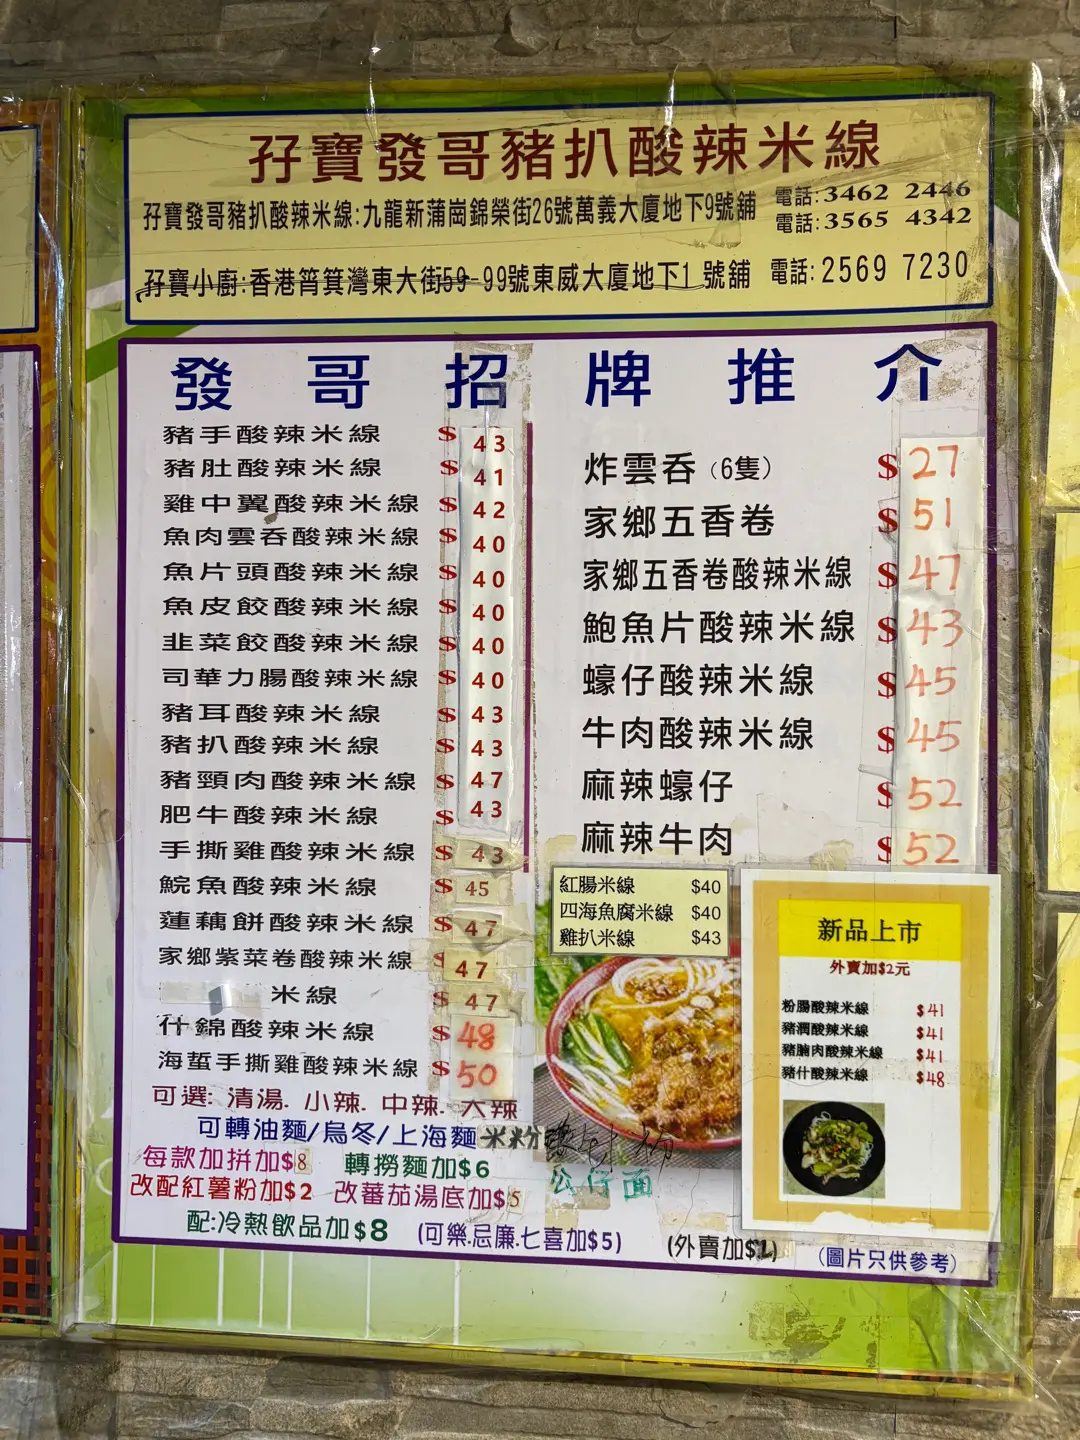 孖寶發哥豬扒酸辣米線
孖寶發哥豬扒酸辣米線:九龍新蒲崗錦榮街26號萬義大廈地下9號舖
電話:3462 2446
電話:3565 4342
孖寶小廚:香港筲箕灣東大街59-99號東威大廈地下1 號舖 電話:2569 7230
發哥招牌推介
豬手酸辣米線 $43
豬肚酸辣米線 $41
雞中翼酸辣米線 $42
魚肉雲吞酸辣米線 $40
魚片頭酸辣米線 $40
魚皮餃酸辣米線 $40
韭菜餃酸辣米線 $40
司華力腸酸辣米線 $40
豬耳酸辣米線 $43
豬扒酸辣米線 $43
豬頸肉酸辣米線 $47
肥牛酸辣米線 $43
手撕雞酸辣米線 $43
鯇魚酸辣米線 $45
蓮藕餅酸辣米線 $47
家鄉紫菜卷酸辣米線 $47
米線 $47
什錦酸辣米線 $48
海蜇手撕雞酸辣米線 $50
炸雲吞(6隻) $27
家鄉五香卷 $51
家鄉五香卷酸辣米線 $47
鮑魚片酸辣米線 $43
蠔仔酸辣米線 $45
牛肉酸辣米線 $45
麻辣蠔仔 $52
麻辣牛肉 $52
紅腸米線 $40
四海魚腐米線 $40
雞扒米線 $43
新品上市
外賣加$2元
粉腸酸辣米線 $41
豬潤酸辣米線 $41
豬腩肉酸辣米線 $41
豬什酸辣米線 $48
可選: 清湯. 小辣. 中辣. 大辣
可轉油麵/烏冬/上海麵 米粉
公仔面
每款加拼加$8 轉撈麵加$6
改配紅薯粉加$2 改蕃茄湯底加$5
配:冷熱飲品加$8 (可樂.忌廉.七喜加$5) (外賣加$2) (圖片只供參考)